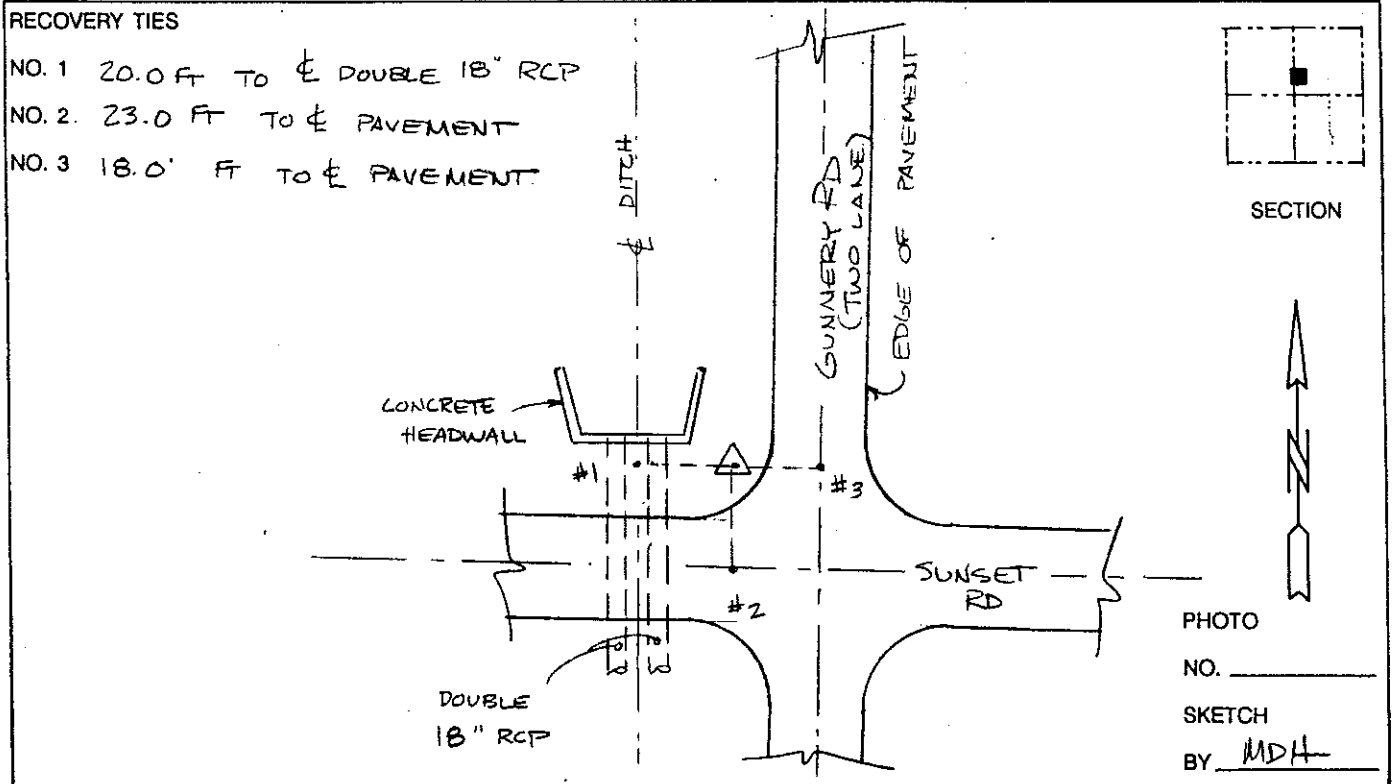 RECOVERY TIES
NO. 1 20.0 FT TO ℄ DOUBLE 18" RCP
NO. 2. 23.0 FT TO ℄ PAVEMENT
NO. 3 18.0' FT TO ℄ PAVEMENT
℄ DITCH
GUNNERY RD
(TWO LANE)
EDGE OF PAVEMENT
SECTION
CONCRETE
HEADWALL
#1
#3
#2
SUNSET
RD
DOUBLE
18" RCP
N
PHOTO
NO.
SKETCH
BY MDH